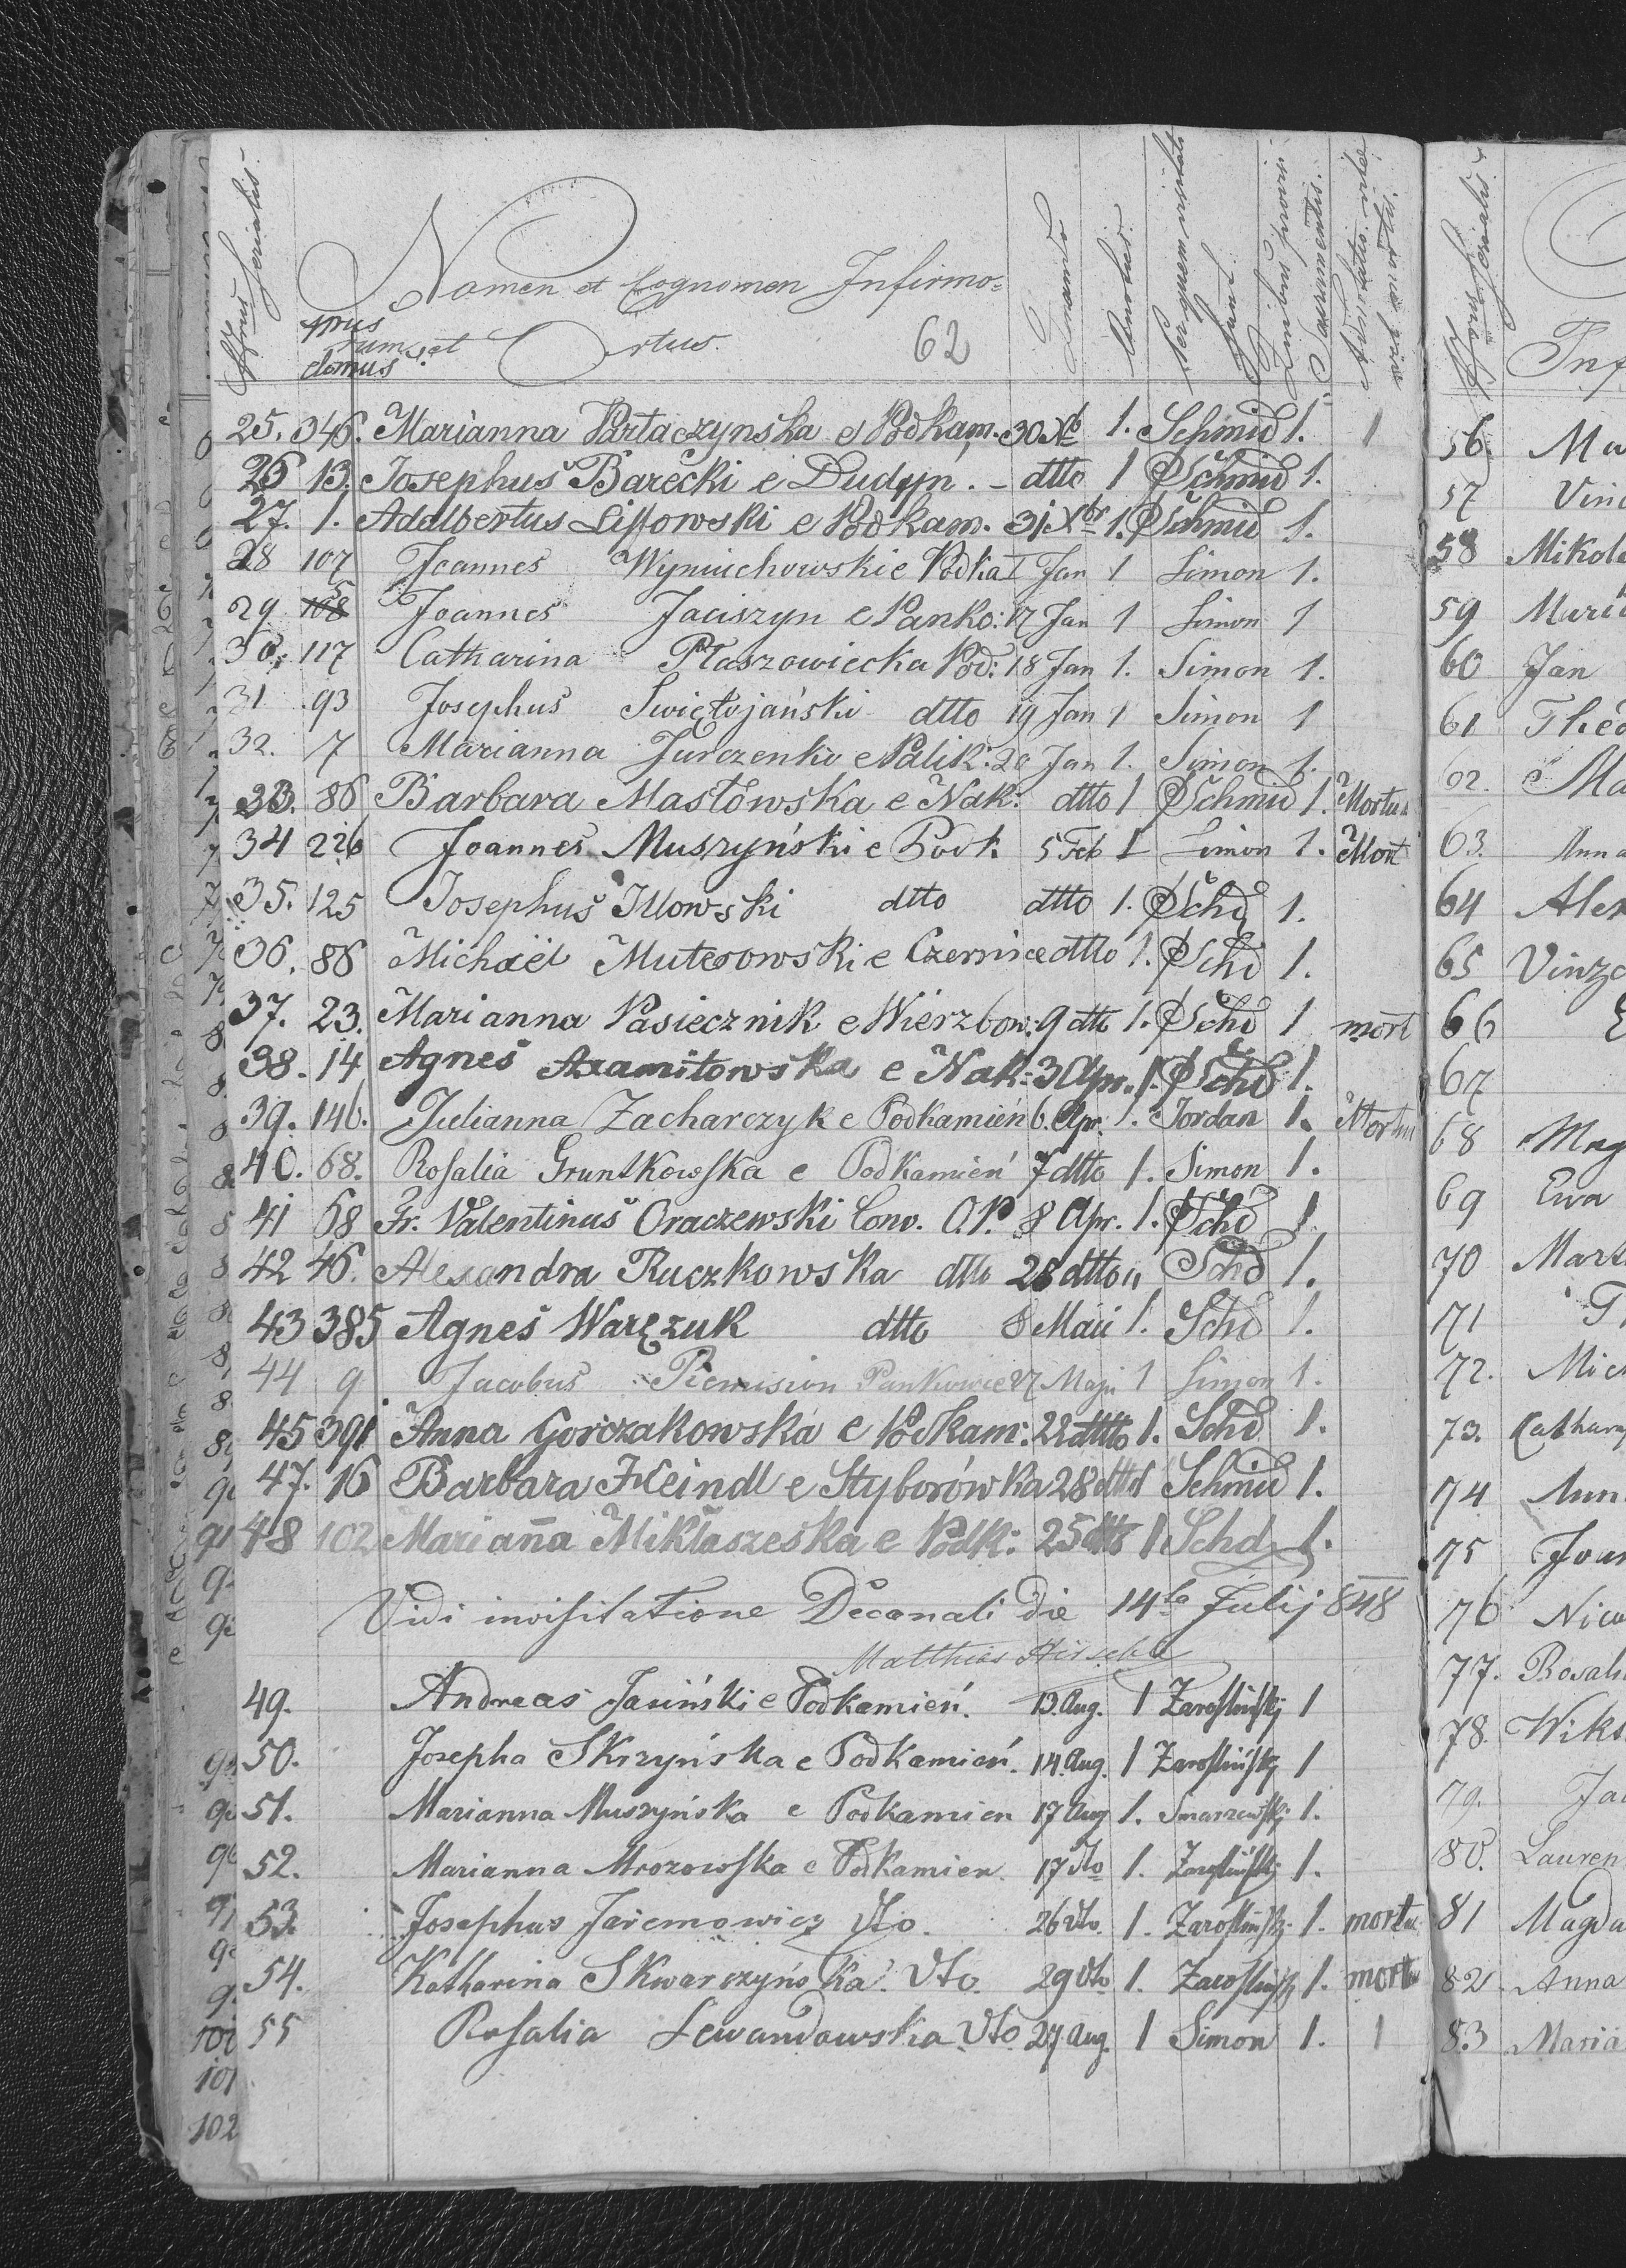 Nrus Serialis.
Nrus domus
Nomen et Cognomen Infirmo=
rum et Ortus.
62
Quando
Per quem visitati
Quibus provisi Sacramentis.
25. 346. Marianna Partaczynska e Podkam. 30 Xb 1. Schmid 1. 1
26 13. Josephus Barecki e Dudyn. - dtto 1 PSchmid 1.
27. 1. Adalbertus Lissowski e Podkam. 31 Xbr 1. PSchmid 1.
28 107 Joannes Wyniuchowski e Podka 1 Jan 1 Simon 1.
29 Joannes Jaciszyn e Panko: 17 Jan 1 Simon 1
30. 117 Catharina Płaszowiecka Pod: 18 Jan 1. Simon 1.
31 93 Josephus Swiętojański dtto 19 Jan 1 Simon 1
32. 7 Marianna Jurczenko e Palik: 20 Jan 1. Simon 1.
33. 86 Barbara Masłowska e Nak: dtto 1 PSchmid 1. Mortua
34 226 Joannes Muszyński e Podk 5 Feb 1 Simon 1. Mort
35. 125 Josephus Iłłowski dtto dtto 1. PSchd 1.
36. 86 Michaël Muterowski e Czernice dtto 1. PSchd 1.
37. 23. Marianna Pasiecznik e Wierzbow: 9 dtto 1. PSchd 1 mort
38. 14 Agnes e Nak: 3 Apr. 1. PSchd 1.
39. 146. Julianna Zacharczyk e Podkamień 6. Apr. 1. Jordan 1. Mortua
40. 68. Rosalia Gruntkowska e Podkamień 7 dtto 1. Simon 1.
41 68 Fr. Valentinus Oraczewski Conv. O.P. 8 Apr. 1. PSchd 1.
42 46. Alexandra Ruczkowska dtto 28 dtto 1, Schd 1.
43 385 Agnes Waręzuk dtto 8 Maii 1. Schd 1.
44 9 Jacobus Pankowice 27 Maji 1 Simon 1.
45 391 Anna Gorczakowska e Podkam: 22 dtto 1. Schd 1.
47. 16 Barbara Heindl e Styborówka 28 dtto 1 Schmid 1.
48 102 Marian̄a Mikłaszeska e Podk: 25 dtto 1 Schd 1.
Vidi in visitatione Decanali die 14ta Julij 848
Matthias
49. Andreas Jasiński e Podkamień. 13. Aug. 1 1
50. Josepha Skrzyńska e Podkamień. 14. Aug. 1 1
51. Marianna Muszyńska e Podkamien 17 Aug 1. Smarzewski 1.
52. Marianna Mrozowska e Podkamien. 17 dto 1. 1.
53. Josephus Jaremowicz dto. 26 dto. 1. 1. mortu
54. Katharina Skwarczyńska. dto. 29 dto. 1. 1. mortu
55 Rosalia Lewandowska dto 27 Aug. 1 Simon 1. 1
Nrus Serialis.
Inf
56. Ma
57 Vinc
58 Mikola
59 Maria
60 Jan
61 Theo
62. Ma
63. Anna
64 Alex
65 Vinze
66
67
68 Mag
69 Ewa
70 Mart
71
72. Mic
73. Cathar
74 Ann
75 Joan
76 Nico
77. Rosali
78. Wikt
79. Ja
80. Lauren
81 Magda
82. Anna
83 Maria
101
102